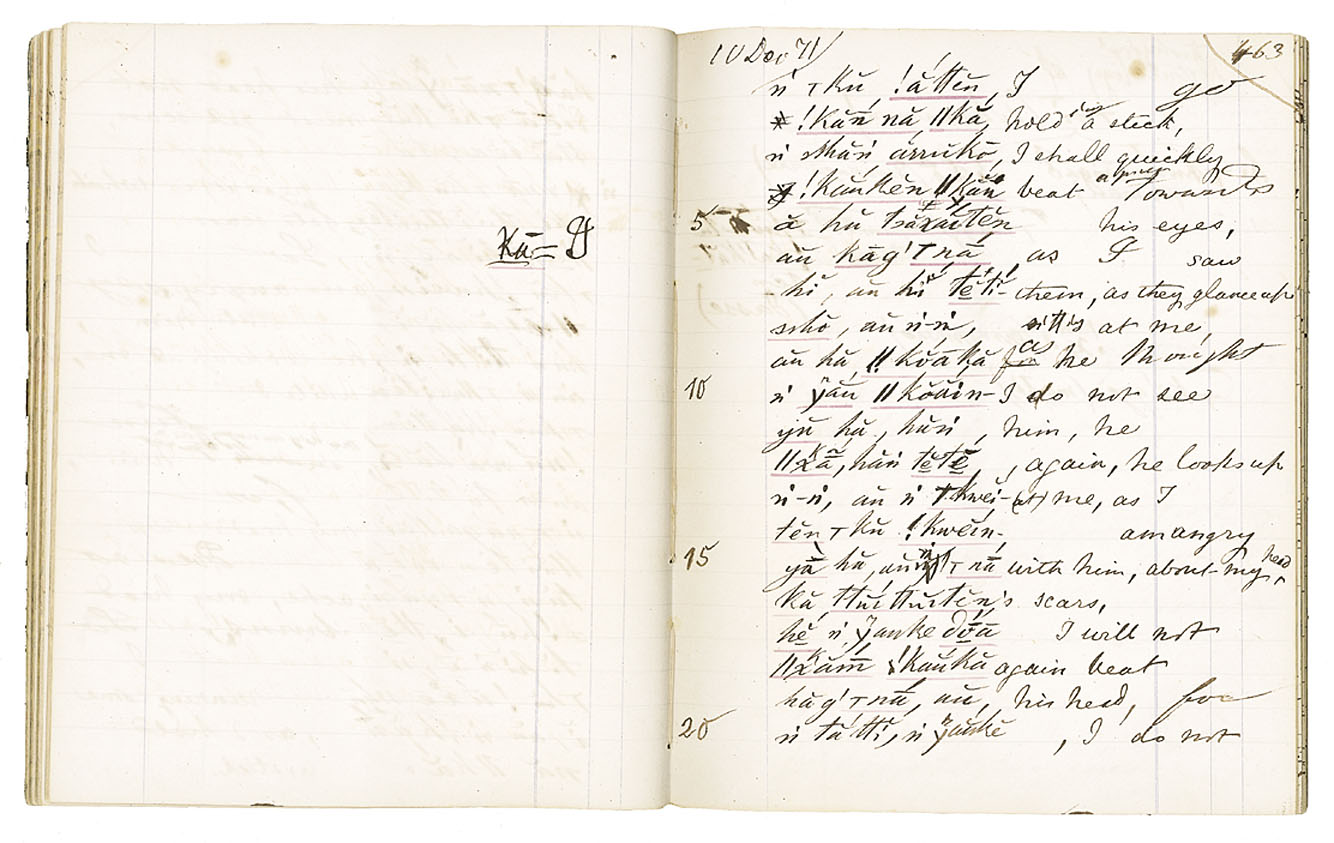 Kā = I
10 Dec 71
463
ń ꞇ kŭ, !ăttĕn, I go
!kāń nā ǁkā, hold a stick,
ń shăń ărrŭkō, I shall quickly
!kăukĕn ǁkāń beat towards
5 ă hŭ tsăxăĭtĕn his eyes,
aŭ kāgʹꞇnā, as I saw
hĭ, aŭ hĭ tĕtĭ- them, as they glance up
sshō, aŭ ń-ń, at me,
aŭ hă, ǁkŏăkă as he thought
10 ń yău ǁkŏăĭn- I do not see
yā hă, hăń, him, he
hăń tĕtĕ, again, he looks up
ń-ń, aŭ ń ꞇkwĕĭ- (at) me, as I
tĕn ꞇkŭ !kwĕĭn, am angry
15 yā hă, aŭ ꞇnā with him, about my head
kă ttŭĭttŭĭtĕn's scars,
hĕ ń yaŭkĕ dŏā I will not
!kaŭkă again beat
hăgʹꞇnā, aŭ, his head, for
20 ń tă ttĭ, ń yaŭkĕ, I do not